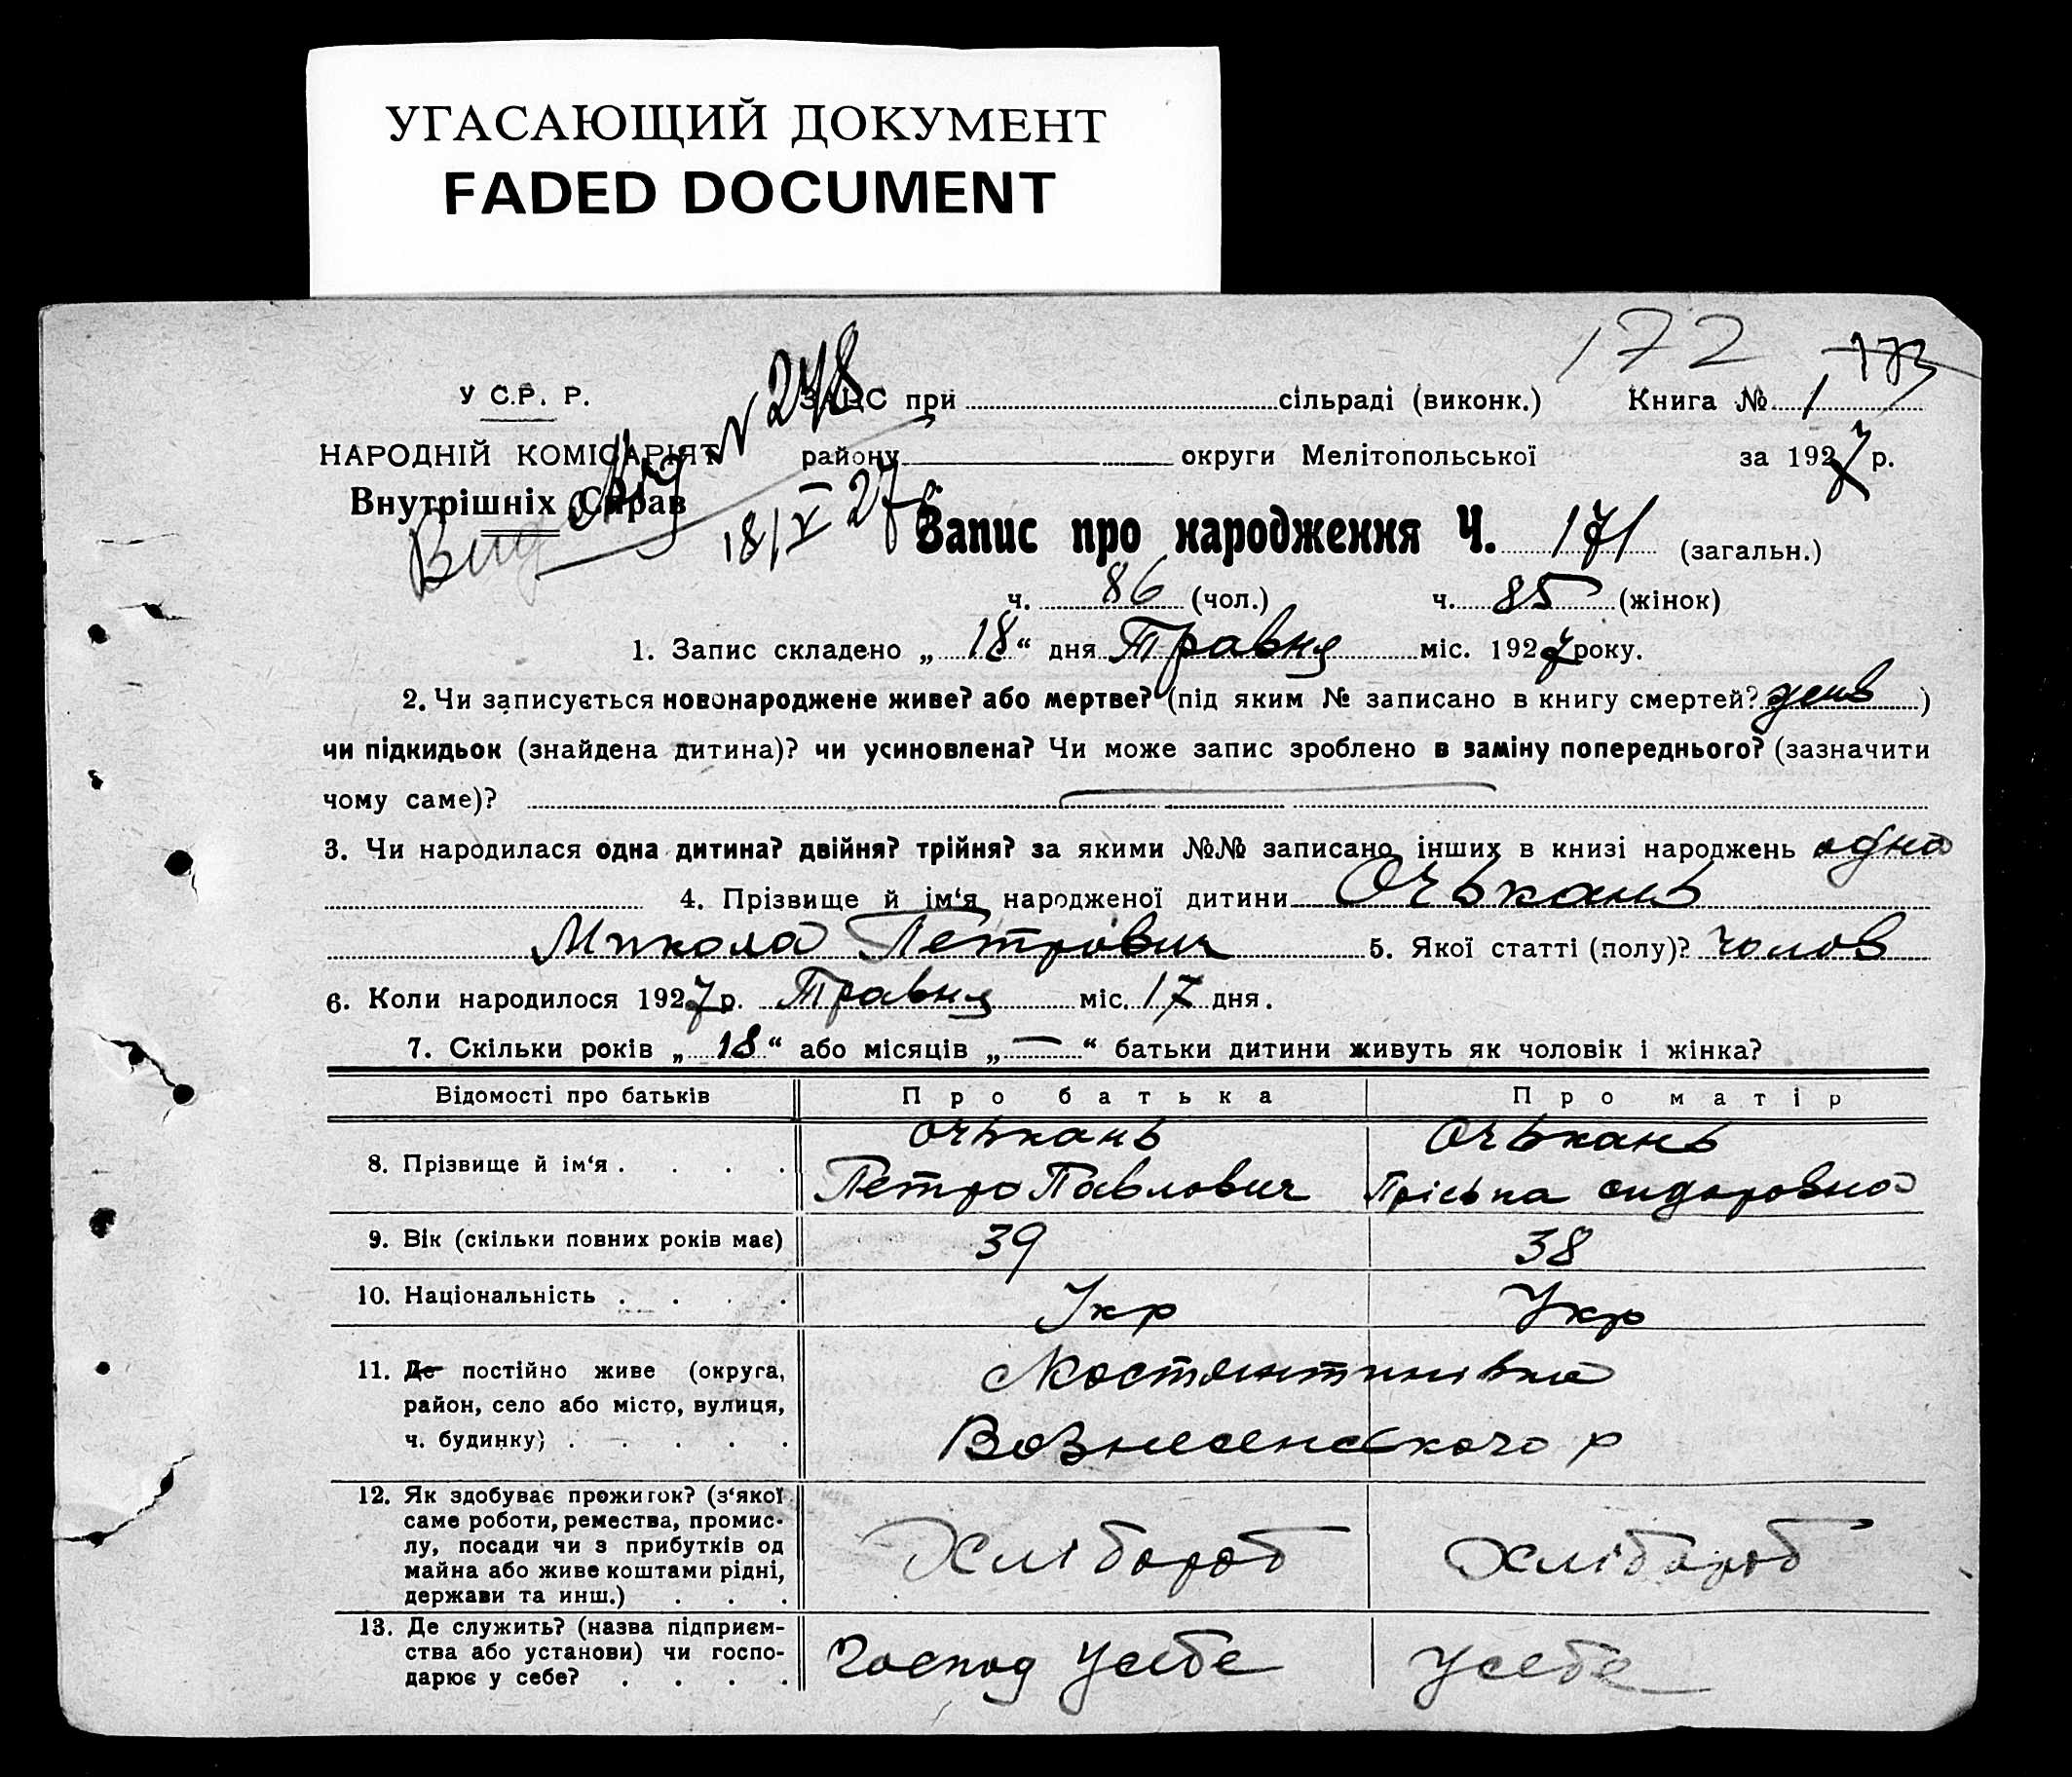 УГАСАЮЩИЙ ДОКУМЕНТ
FADED DOCUMENT
172
173
У С.Р. Р.
НАРОДНІЙ КОМІСАРІЯТ
Внутрішніх Справ
N 248
18/V 27
ЗАГС при сільраді (виконк.) Книга № 1
району округи Мелітопольської за 1927 р.
Запис про народження Ч. 171 (загальн.)
ч. 86 (чол.) ч. 85 (жінок)
1. Запис складено „ 18 “ дня Травня міс. 1927 року.
2. Чи записується новонароджене живе? або мертве? (під яким № записано в книгу смертей? )
чи підкидьок (знайдена дитина)? чи усиновлена? Чи може запис зроблено в заміну попереднього? (зазначити
чому саме)?
3. Чи народилася одна дитина? двійня? трійня? за якими №№ записано інших в книзі народжень одна
4. Прізвище й ім‘я народженої дитини Очькань
Микола Петрович 5. Якої статті (полу)? чолов
6. Коли народилося 1927 р. Травня міс. 17 дня.
7. Скільки років „ 18 “ або місяців „ — “ батьки дитини живуть як чоловік і жінка?
Відомості про батьків Про батька Про матір
8. Прізвище й ім‘я . . . . Очькань Петро Павлович Очькань Пріська сидоровна
9. Вік (скільки повних років має) 39 38
10. Національність . . . . Укр Укр
11. Де постійно живе (округа, Костянтинівка
район, село або місто, вулиця,
ч. будинку) . . . . . Вознесенського р
12. Як здобуває прожиток? (з‘якої
саме роботи, ремества, промис-
лу, посади чи з прибутків од Хлібороб Хлібороб
майна або живе коштами рідні,
держави та инш.) . . .
13. Де служить? (назва підприєм-
ства або установи) чи госпо- Господ усебе усебе
дарює у себе? . . . .